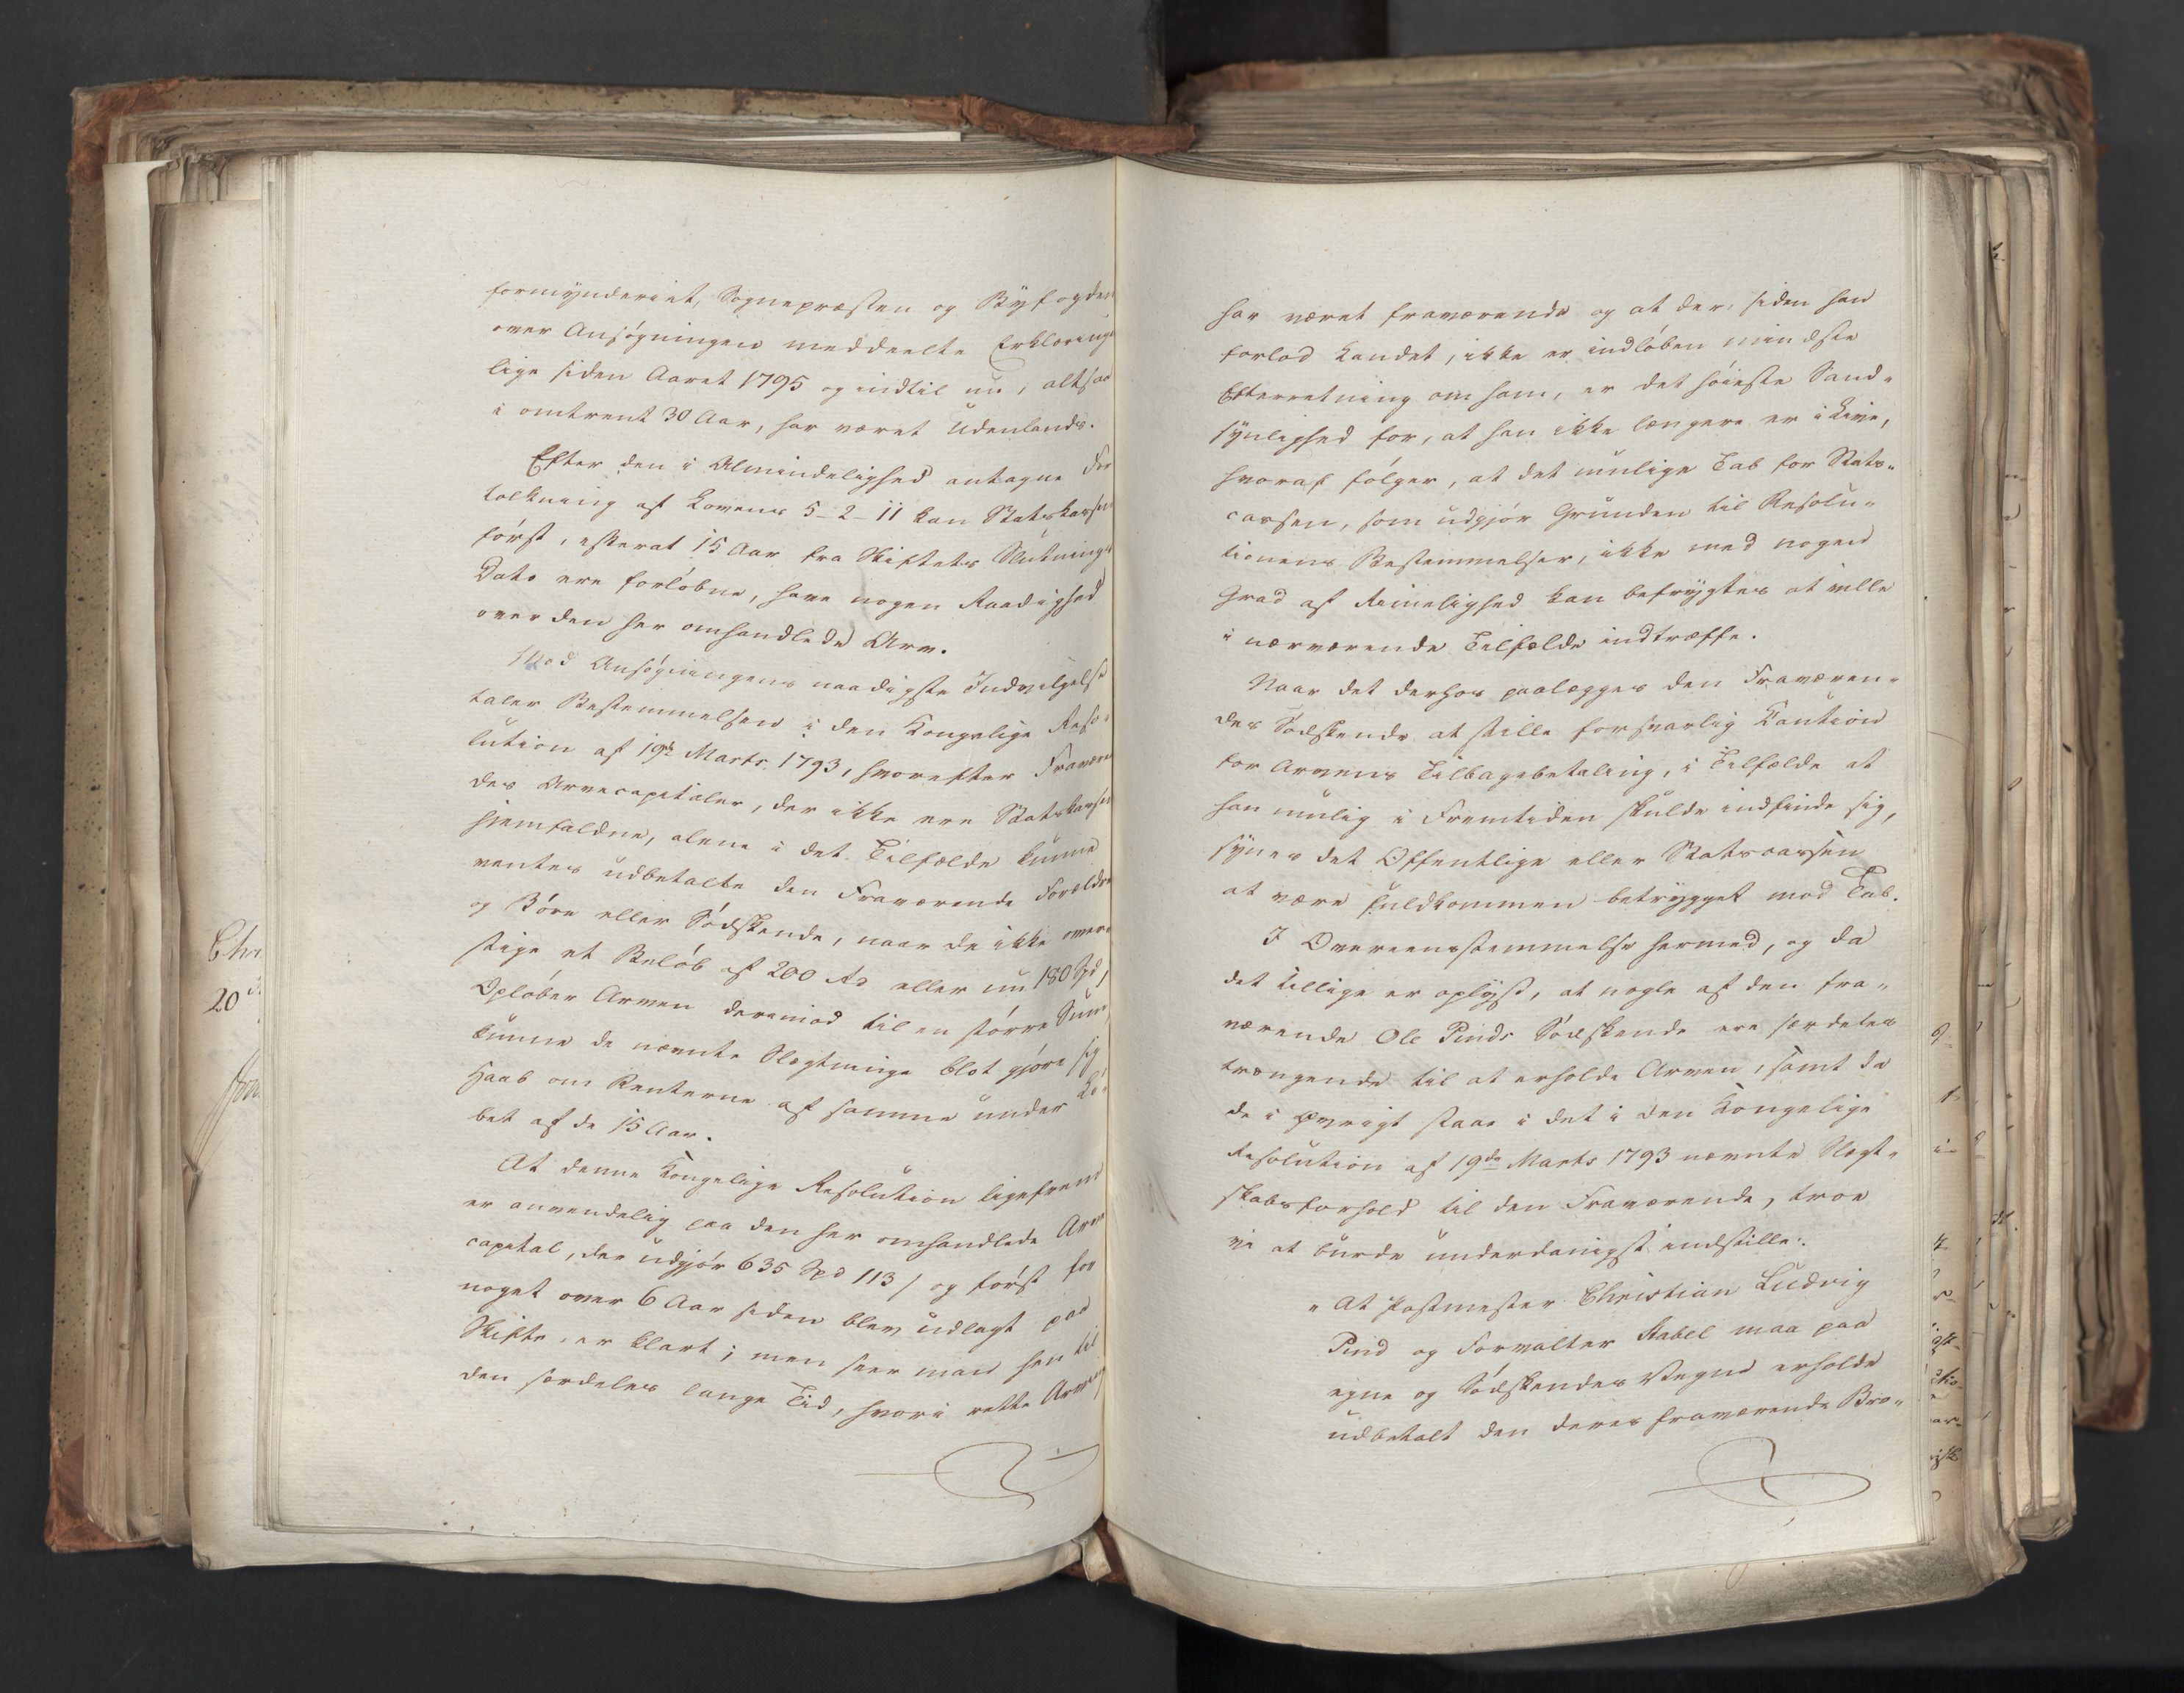 formynderiet, Sognepræsten og Byfogden
over Ansøgningen meddeelte Erklæring
lige siden Aaret 1795 og indtil nu, altsaa
i omtrent 30 Aar, har været Udenlands.
Efter den i Almindelighed antagne For
tolkning af Lovens 5-2-11 kan Statskassen
først, efterat 15 Aar fra Skiftets Slutnings
Dato ere forløbne, have nogen Raadighed
over den her omhandlede Arv.
Mod Ansøgningens naadigste Indvilgelse
taler Bestemmelsen i den Kongelige Reso-
lution af 19de Marts 1793, hvorefter Fraværen
des Arvecapitaler, der ikke ere Statskassen
hjemfaldne, alene i det Tilfælde kunne
ventes udbetalte den Fraværende Forældre
og Børn eller Sødskende, naar de ikke over-
stige et Beløb af 200 Rd eller nu 180 Spd,
Opløber Arven derimod til en større Sum,
kunne de nævnte Slægtninge blot gjøre sig
Haab om Renterne af samme under Lø-
bet af de 15 Aar.
At denne Kongelige Resolution ligefrem
er anvendelig paa den her omhandlede Arve
capital, der udgjør 635 Spd 113 / og først for
noget over 6 Aar siden blev udlagt paa
Skifte, er klart; men seer man hen til
den særdeles lange Tid, hvori rette Arving
har været fraværende og at der, siden han
forlod Landet, ikke er indløben mindste
Efterretning om ham, er det høieste Sand-
synlighed for, at han ikke længere er i Live,
hvoraf følger, at det mulige Tab for Stats-
cassen, som udgjør Grunden til Resolu-
tionens Bestemmelser, ikke med nogen
Grad af Rimelighed kan befrygtes at ville
i nærværende Tilfælde indtræffe.
Naar det derhos paalægges den Fraværen-
des Sødskende at stille forsvarlig Caution
for Arvens Tilbagebetaling, i Tilfælde at
han mulig i Fremtiden skulde indfinde sig,
synes det Offentlige eller Statscassen
at være fuldkommen betrygget mod Tab.
I Overeensstemmelse hermed, og da
det tillige er oplyst, at nogle af den fra-
værende Ole Pinds Sødskende ere særdeles
trængende til at erholde Arven, samt da
de i øvrigt staae i det i den Kongelige
Resolution af 19de Marts 1793 nævnte Slægt-
skabsforhold til den Fraværende, troe
vi at burde underdanigst indstille:
"At Postmester Christian Ludvig
Pind og Forvalter Rabel maa paa
egne og Sødskendes Vegne erholde
udbetalt den deres fraværende Bro-
Chri
20